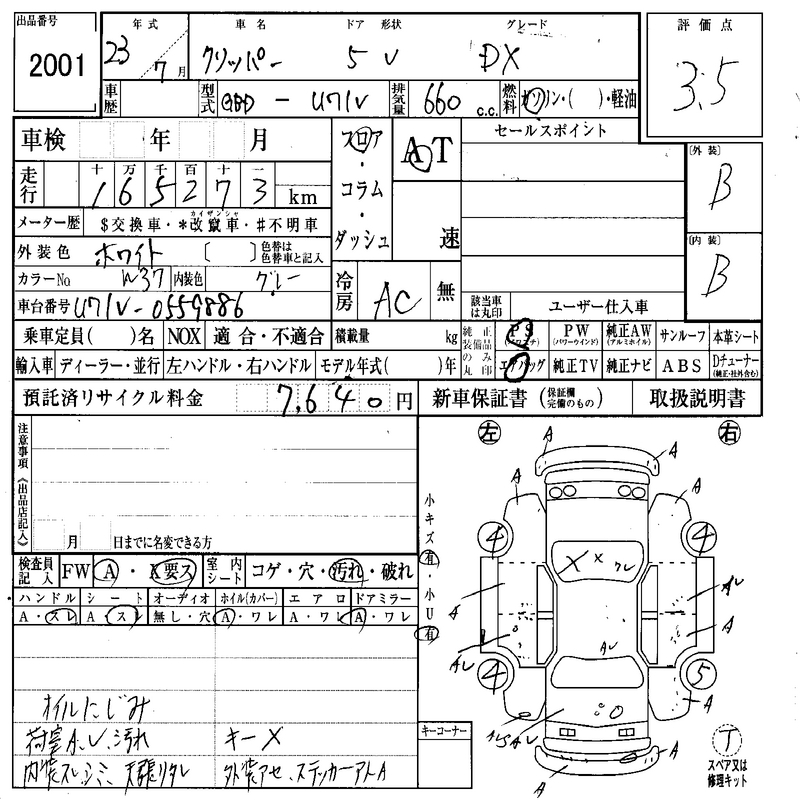 出品番号 年式 車名 ドア 形状 グレード 評価点
2001 23 7月 クリッパー 5 V DX 3.5
車歴 型式 GBD - U71V 排気量 660 c.c. 燃料 ガソリン・( )・軽油
車検 年 月 フロア AT セールスポイント [外装]
走行 十 万 千 百 十 一 コラム B
1 6 5 2 7 3 km
メーター歴 $交換車・*改竄車・#不明車 カイザンシャ ダッシュ 速 [内装]
外装色 ホワイト [ ] 色替は色替車と記入 冷房 AC 無 B
カラーNo W37 内装色 グレー
車台番号 U71V-0559886 該当車は丸印 ユーザー仕入車
乗車定員( )名 NOX 適合・不適合 積載量 kg 純正装備品のみ丸印 PS (パワステ) PW (パワーウインド) 純正AW (アルミホイル) サンルーフ 本革シート
輸入車 ディーラー・並行 左ハンドル・右ハンドル モデル年式( )年 エアバッグ 純正TV 純正ナビ ABS Dチューナー (純正・社外含む)
預託済リサイクル料金 7,640円 新車保証書 (保証欄完備のもの) 取扱説明書
注意事項《出品店記入》 左 右
A A
A A
小キズ有・小U有
月 日までに名変できる方 4 4
検査員記入 FW A・X要ス 室内シート コゲ・穴・汚れ・破れ X X ワレ
ハンドル シート オーディオ ホイル(カバー) エアロ ドアミラー
A・スレ A・スレ 無し・穴 A・ワレ A・ワレ A・ワレ A AU A
AU AU
4 5
オイルにじみ A
荷室A、U、汚れ キーX キーコーナー AU T
内装スレ、シミ 天張りタレ 外装アセ、ステッカーアトA A A スペア又は修理キット